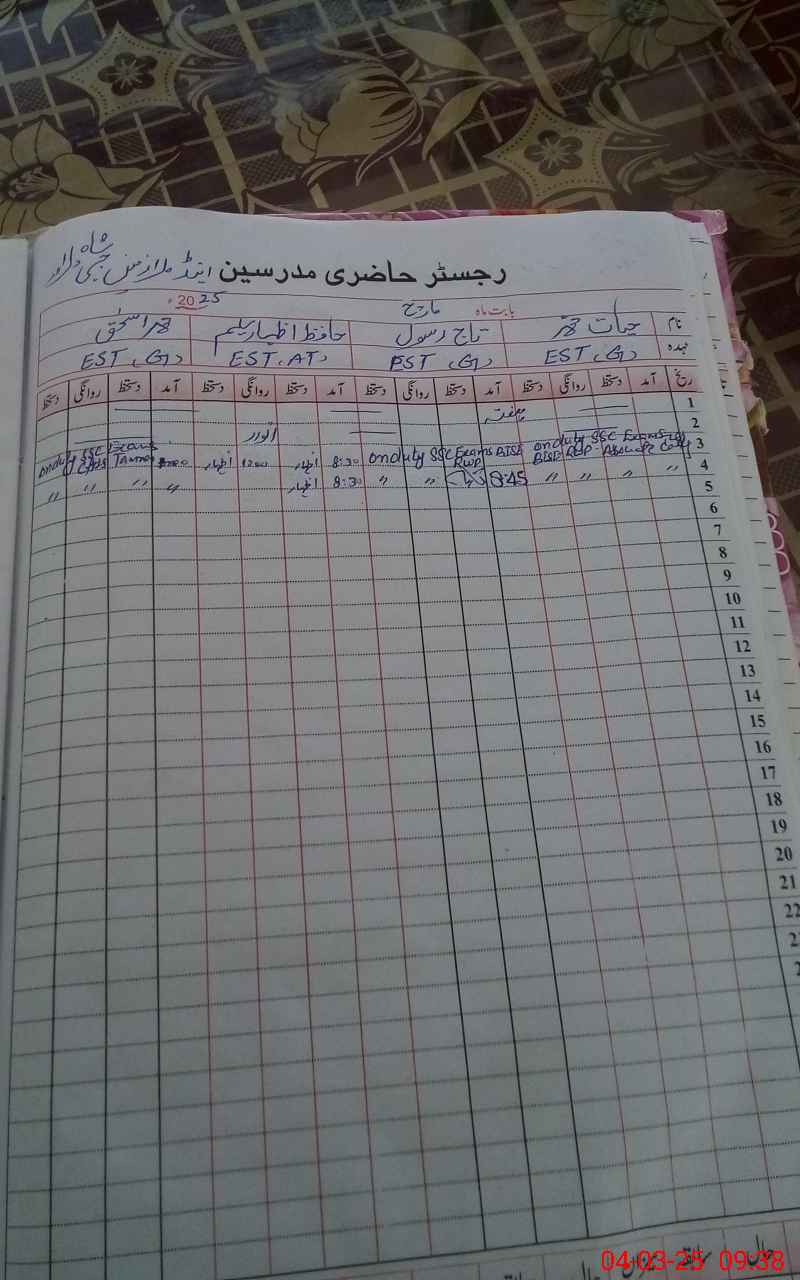 رجسٹر حاضری مدرسین اینڈ ملازمین
شاہ
بابت ماہ مارچ 2025ء
نام حیات محمد تاج رسول حافظ اظہار سلیم محمد اسحٰق
عہدہ EST (G) PST (G) EST (AT) EST (G)
تاریخ آمد دستخط روانگی دستخط آمد دستخط روانگی دستخط آمد دستخط روانگی دستخط آمد دستخط روانگی دستخط
1 ہفتہ
2 اتوار
3 on duty SSC Exams BISE RWP on duty SSC Exams BISE RWP 8:30 اظہار 1200 اظہار on duty SSC Exams
4 〃 〃 〃 〃 8:45 〃 〃 8:30 اظہار 〃 〃 〃 〃
5
6
7
8
9
10
11
12
13
14
15
16
17
18
19
20
21
22
04-03-25 09:38